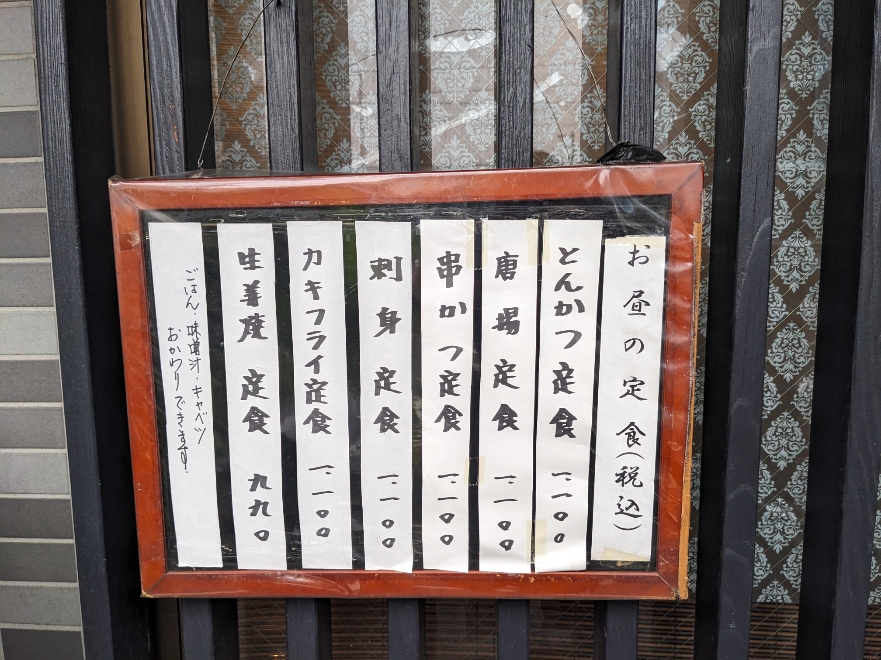 お昼の定食(税込)
とんかつ定食 一、一〇〇
唐揚定食 一、一〇〇
串かつ定食 一、一〇〇
刺身定食 一、一〇〇
カキフライ定食 一、一〇〇
生姜焼定食 九九〇
ごはん・味噌汁・キャベツ
おかわりできます!